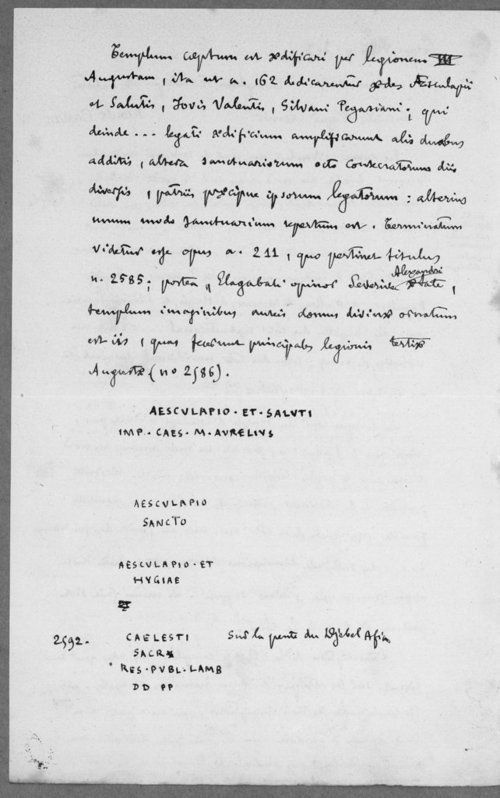 Templum cœptum est ædificari per legionem III
Augustam, ita ut a. 162 dedicarentur ædes Æsculapii
et Salutis, Jovis Valentis, Silvani Pegasiani; qui
deinde ... legati ædificium amplificarunt alis duabus
additis, altera sanctuariorum octo consecratorum diis
diversis, patriis præcipue ipsorum legatorum: alterius
unum modo sanctuarium repertum est. Terminatum
videtur esse opus a. 211, quo pertinet titulus
n. 2585; postea, Elagabali opinor Severive Alexandri ætate,
templum imaginibus aureis domus divinæ ornatum
est iis, quas fecerunt principales legionis tertiæ
Augustæ (no 2586).
AESCVLAPIO · ET · SALVTI
IMP · CAES · M · AVRELIVS
AESCVLAPIO
SANCTO
AESCVLAPIO · ET
HYGIAE
2592. CAELESTI Sur la pente du Djebel Afia
SACR
RES · PVBL · LAMB
DD PP